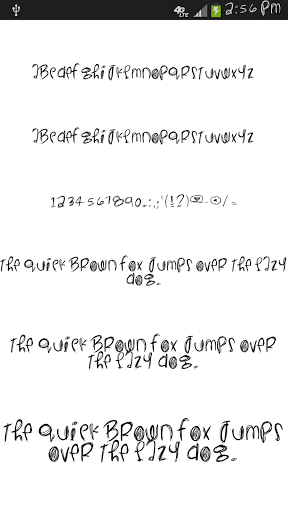 4G LTE 2:56 PM
ABcdefghijklmnopqrstuvwxyz
ABcdefghijklmnopqrstuvwxyz
1234567890.:,;'(!?)
The quick Brown fox jumps over the lazy
dog.
The quick Brown fox jumps over
the lazy dog.
The quick Brown fox jumps
over the lazy dog.